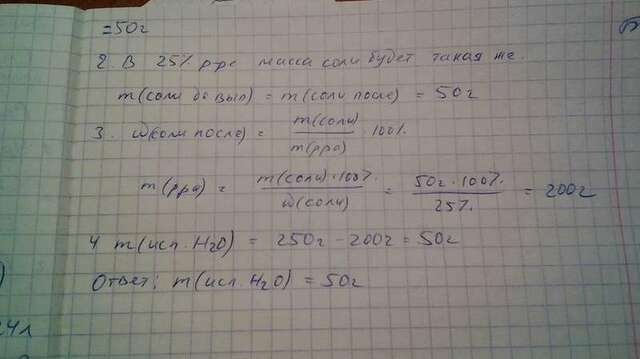 =50г
2. В 25% р-ре масса соли будет такая же.
m(соли до вып) = m(соли после) = 50г
3. ω(соли после) = m(соли) / m(рра) · 100%
m(рра) = m(соли)·100% / ω(соли) = 50г·100% / 25% = 200г
4 m(исп. H2O) = 250г – 200г = 50г
Ответ: m(исп. H2O) = 50г
24л